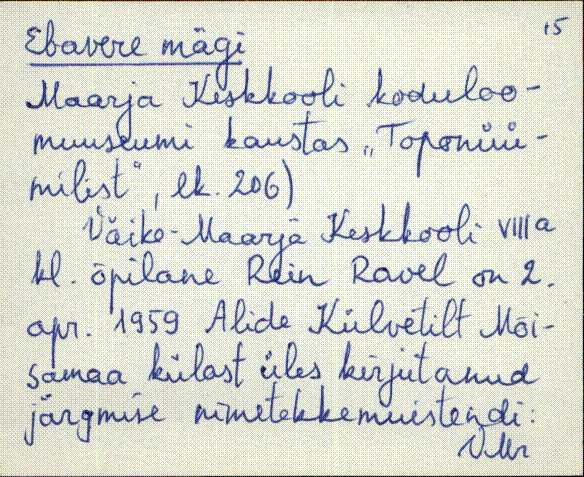 15
Ebavere mägi
Maarja Keskkooli koduloo-
muuseumi kaustas „Toponüü-
milist“, lk. 206)
Väike-Maarja Keskkooli VIII a
kl. õpilane Rein Ravel on 2.
apr. 1959 Alide Külvetilt Mõi-
samaa külast üles kirjutanud
järgmise nimetekkemuistendi: